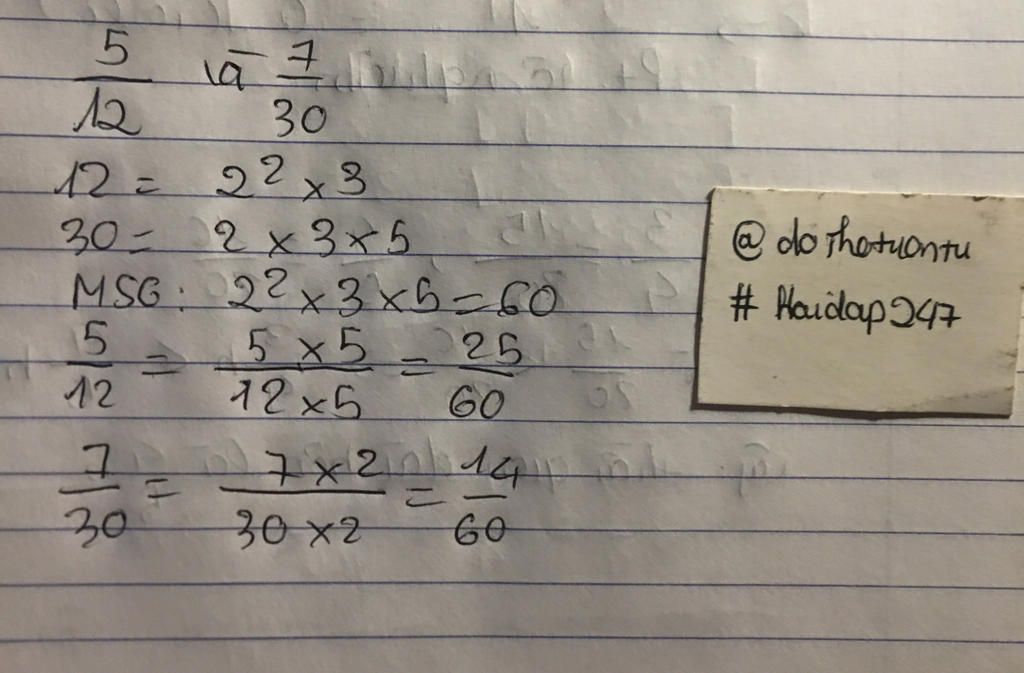 5/12 và 7/30
12 = 2² × 3
30 = 2 × 3 × 5
MSG: 2² × 3 × 5 = 60
5/12 = 5 × 5 / 12 × 5 = 25/60
7/30 = 7 × 2 / 30 × 2 = 14/60
@dothotuantu
#Hoidap247